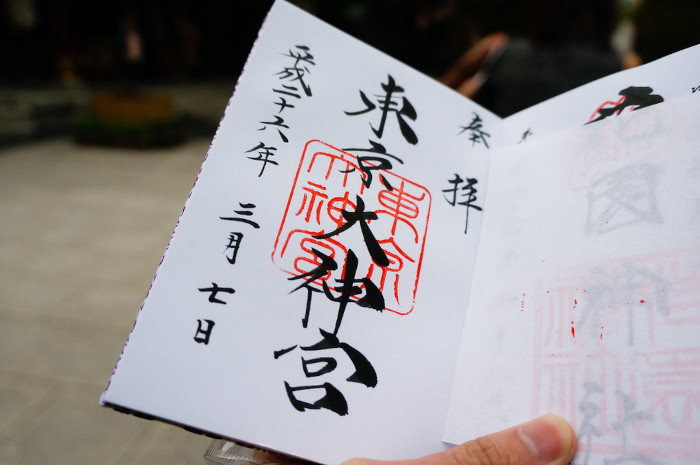 奉拝
東京大神宮
東京
大神宮
平成二十六年
三月
七日